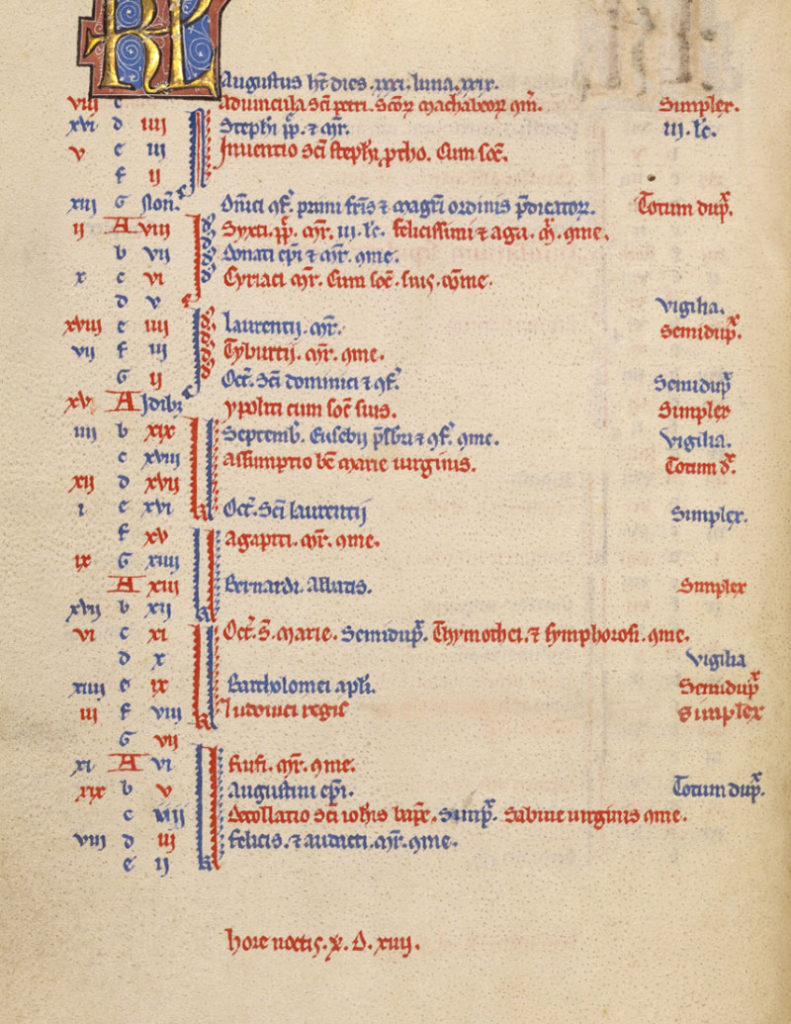 KL
Augustus ht dies. xxxi. luna. xxix.
viii c Aduincula sci petri. scor machabeor mr. Simplex.
xvi d iiii Stephi pp. & mr. iii. lc.
v e iii Inuentio sci stephi ptho. Cum soc.
f ii
xiii G Non. Dnici qf. primi fris & magri ordinis pdicator. Totum dup.
ii A viii Syxti. pp. mr. iii. lc. felicissimi & aga. m. qme.
b vii Donati epi & mr. qme.
x c vi Cyriaci mr. Cum soc. suis. qme.
d v vigilia.
xviii e iiii laurentii. mr. Semidup.
vii f iii Tyburtii. mr. qme.
G ii Oct. sci dominici & qf. Semidup
xv A Idib ypoliti cum soc suis. Simplex
iiii b xix Septemb. Eusebii psbri & qf. qme. vigilia.
c xviii assumptio be marie uirginis. Totum d.
xii d xvii
i e xvi Oct. sci laurentii Simplex.
f xv agapiti. mr. qme.
ix G xiiii
A xiii Bernardi. Abbatis. Simplex
xvii b xii
vi c xi Oct. s. marie. Semidup. Thymothei. & symphorosi. qme.
d x vigilia
xiiii e ix Bartholomei apli. Semidup
iii f viii ludouici regis simplex
G vii
xi A vi Rufi. mr. qme.
xix b v augustini epi. Totum dup.
c iiii Decollatio sci iohis bapt. simp. Sabine uirginis qme.
viii d iii felicis. & audacti. mr. qme.
e ii
hore noctis. x. D. xiiii.